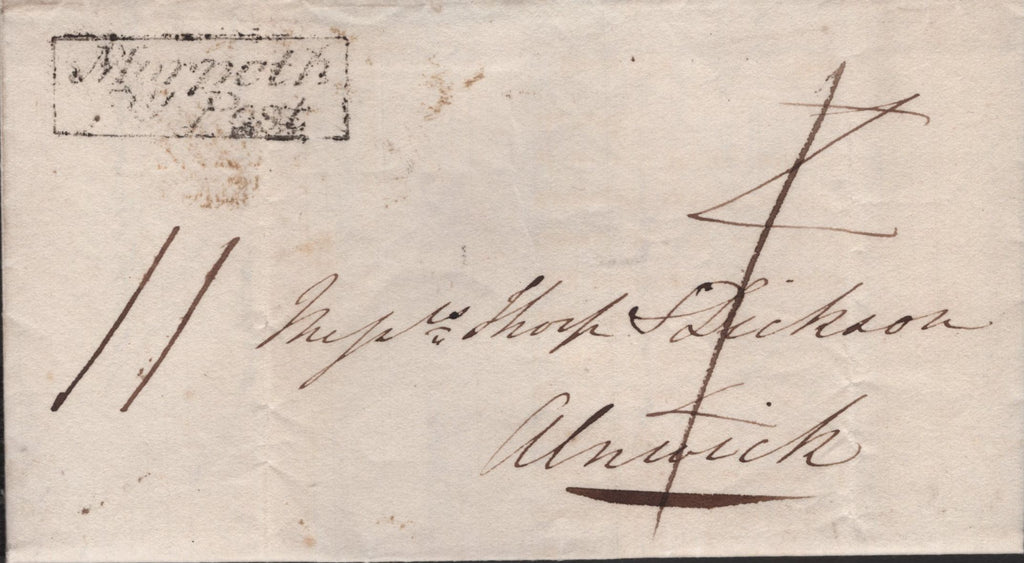 Morpeth
Py Post
11
Messrs Thorp & Dickson
Alnwick